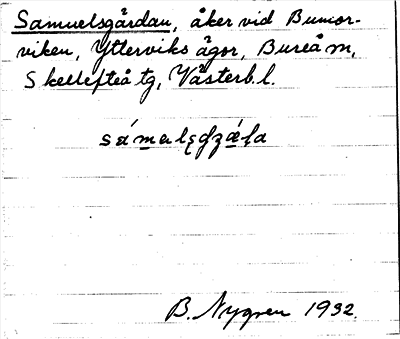 Samuelsgårdan, åker vid Bumor-
viken, Ytterviks ägor, Bureå sn,
Skellefteå tg, Västerb. l.
B. Nygren 1932.